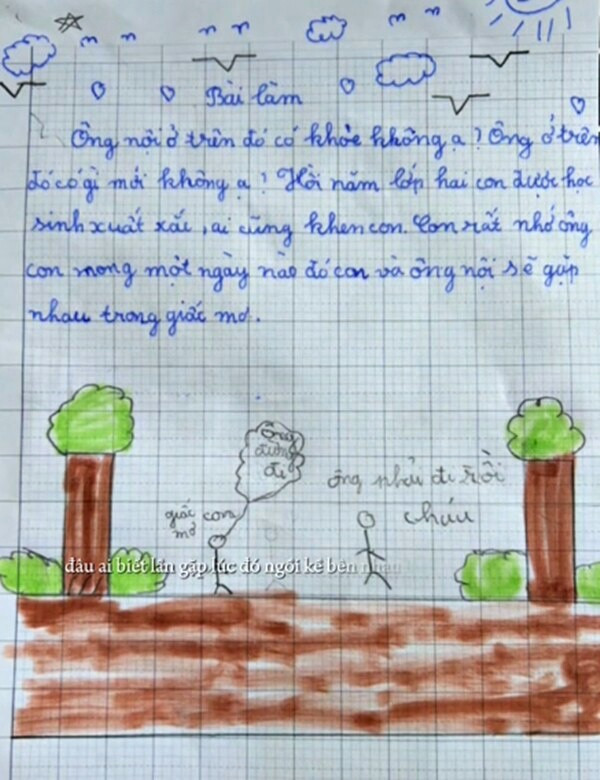 Bài làm
Ông nội ở trên đó có khỏe không ạ? Ông ở trên
đó có gì mới không ạ? Hồi năm lớp hai con được học
sinh xuất xắc, ai cũng khen con. Con rất nhớ ông
con mong một ngày nào đó con và ông nội sẽ gặp
nhau trong giấc mơ.
Ông
đừng
đi
giấc mơ
con
ông phải đi rồi
cháu
đâu ai biết lần gặp lúc đó ngồi kế bên nhau